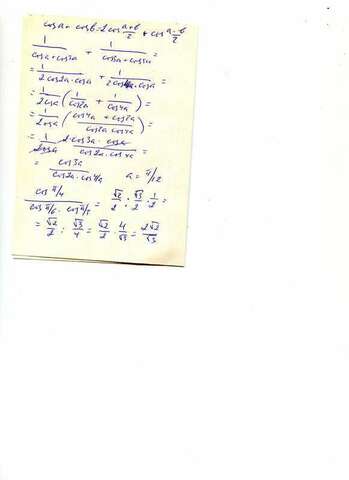 cos a + cos b = 2 cos (a+b)/2 + cos (a-b)/2
1/(cos a + cos 3a) + 1/(cos 3a + cos 5a) =
= 1/(2 cos 2a · cos a) + 1/(2 cos 4a · cos a) =
= 1/(2 cos a) (1/cos 2a + 1/cos 4a) =
= 1/(2 cos a) ((cos 4a + cos 2a)/(cos 2a cos 4a)) =
= 1/(2 cos a) · (2 cos 3a · cos a)/(cos 2a · cos 4a) =
= cos 3a/(cos 2a · cos 4a) a = π/12
(cos π/4)/(cos π/6 · cos π/3) = √2/2 : √3/2 · 1/2 =
= √2/2 : √3/4 = √2/2 · 4/√3 = 2√2/√3